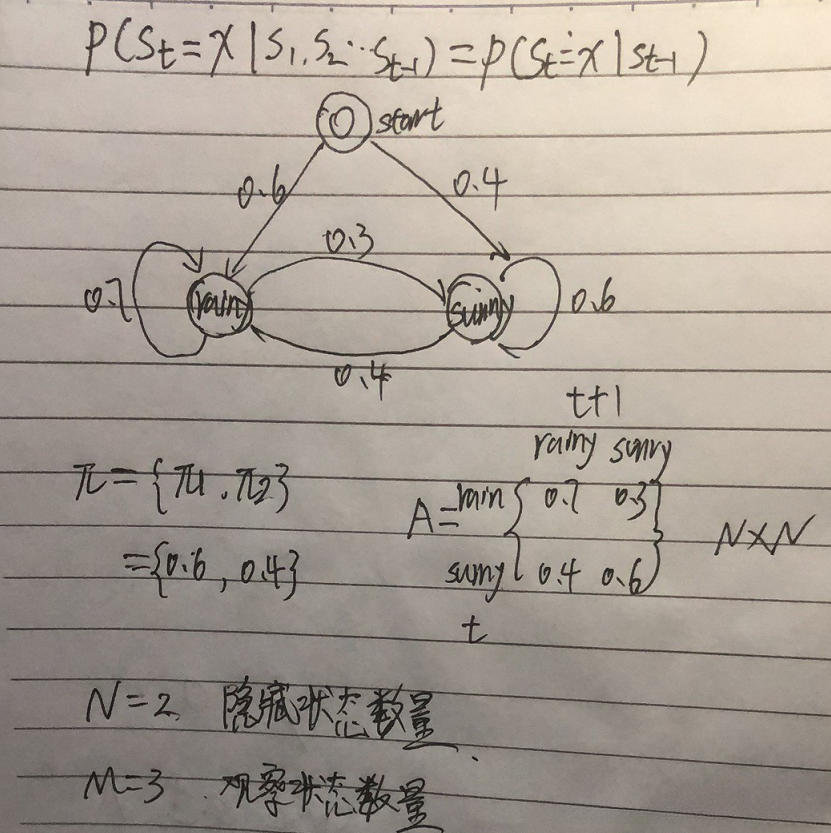 P(St=X|S1,S2··St-1)=P(St=X|St-1)
start
0.6 0.4
0.3
0.7 rain sunny 0.6
0.4
t+1
rainy sunny
π={π1,π2} A= rain { 0.7 0.3 } N×N
={0.6,0.4} sunny 0.4 0.6
t
N=2 隐藏状态数量
M=3 观察状态数量